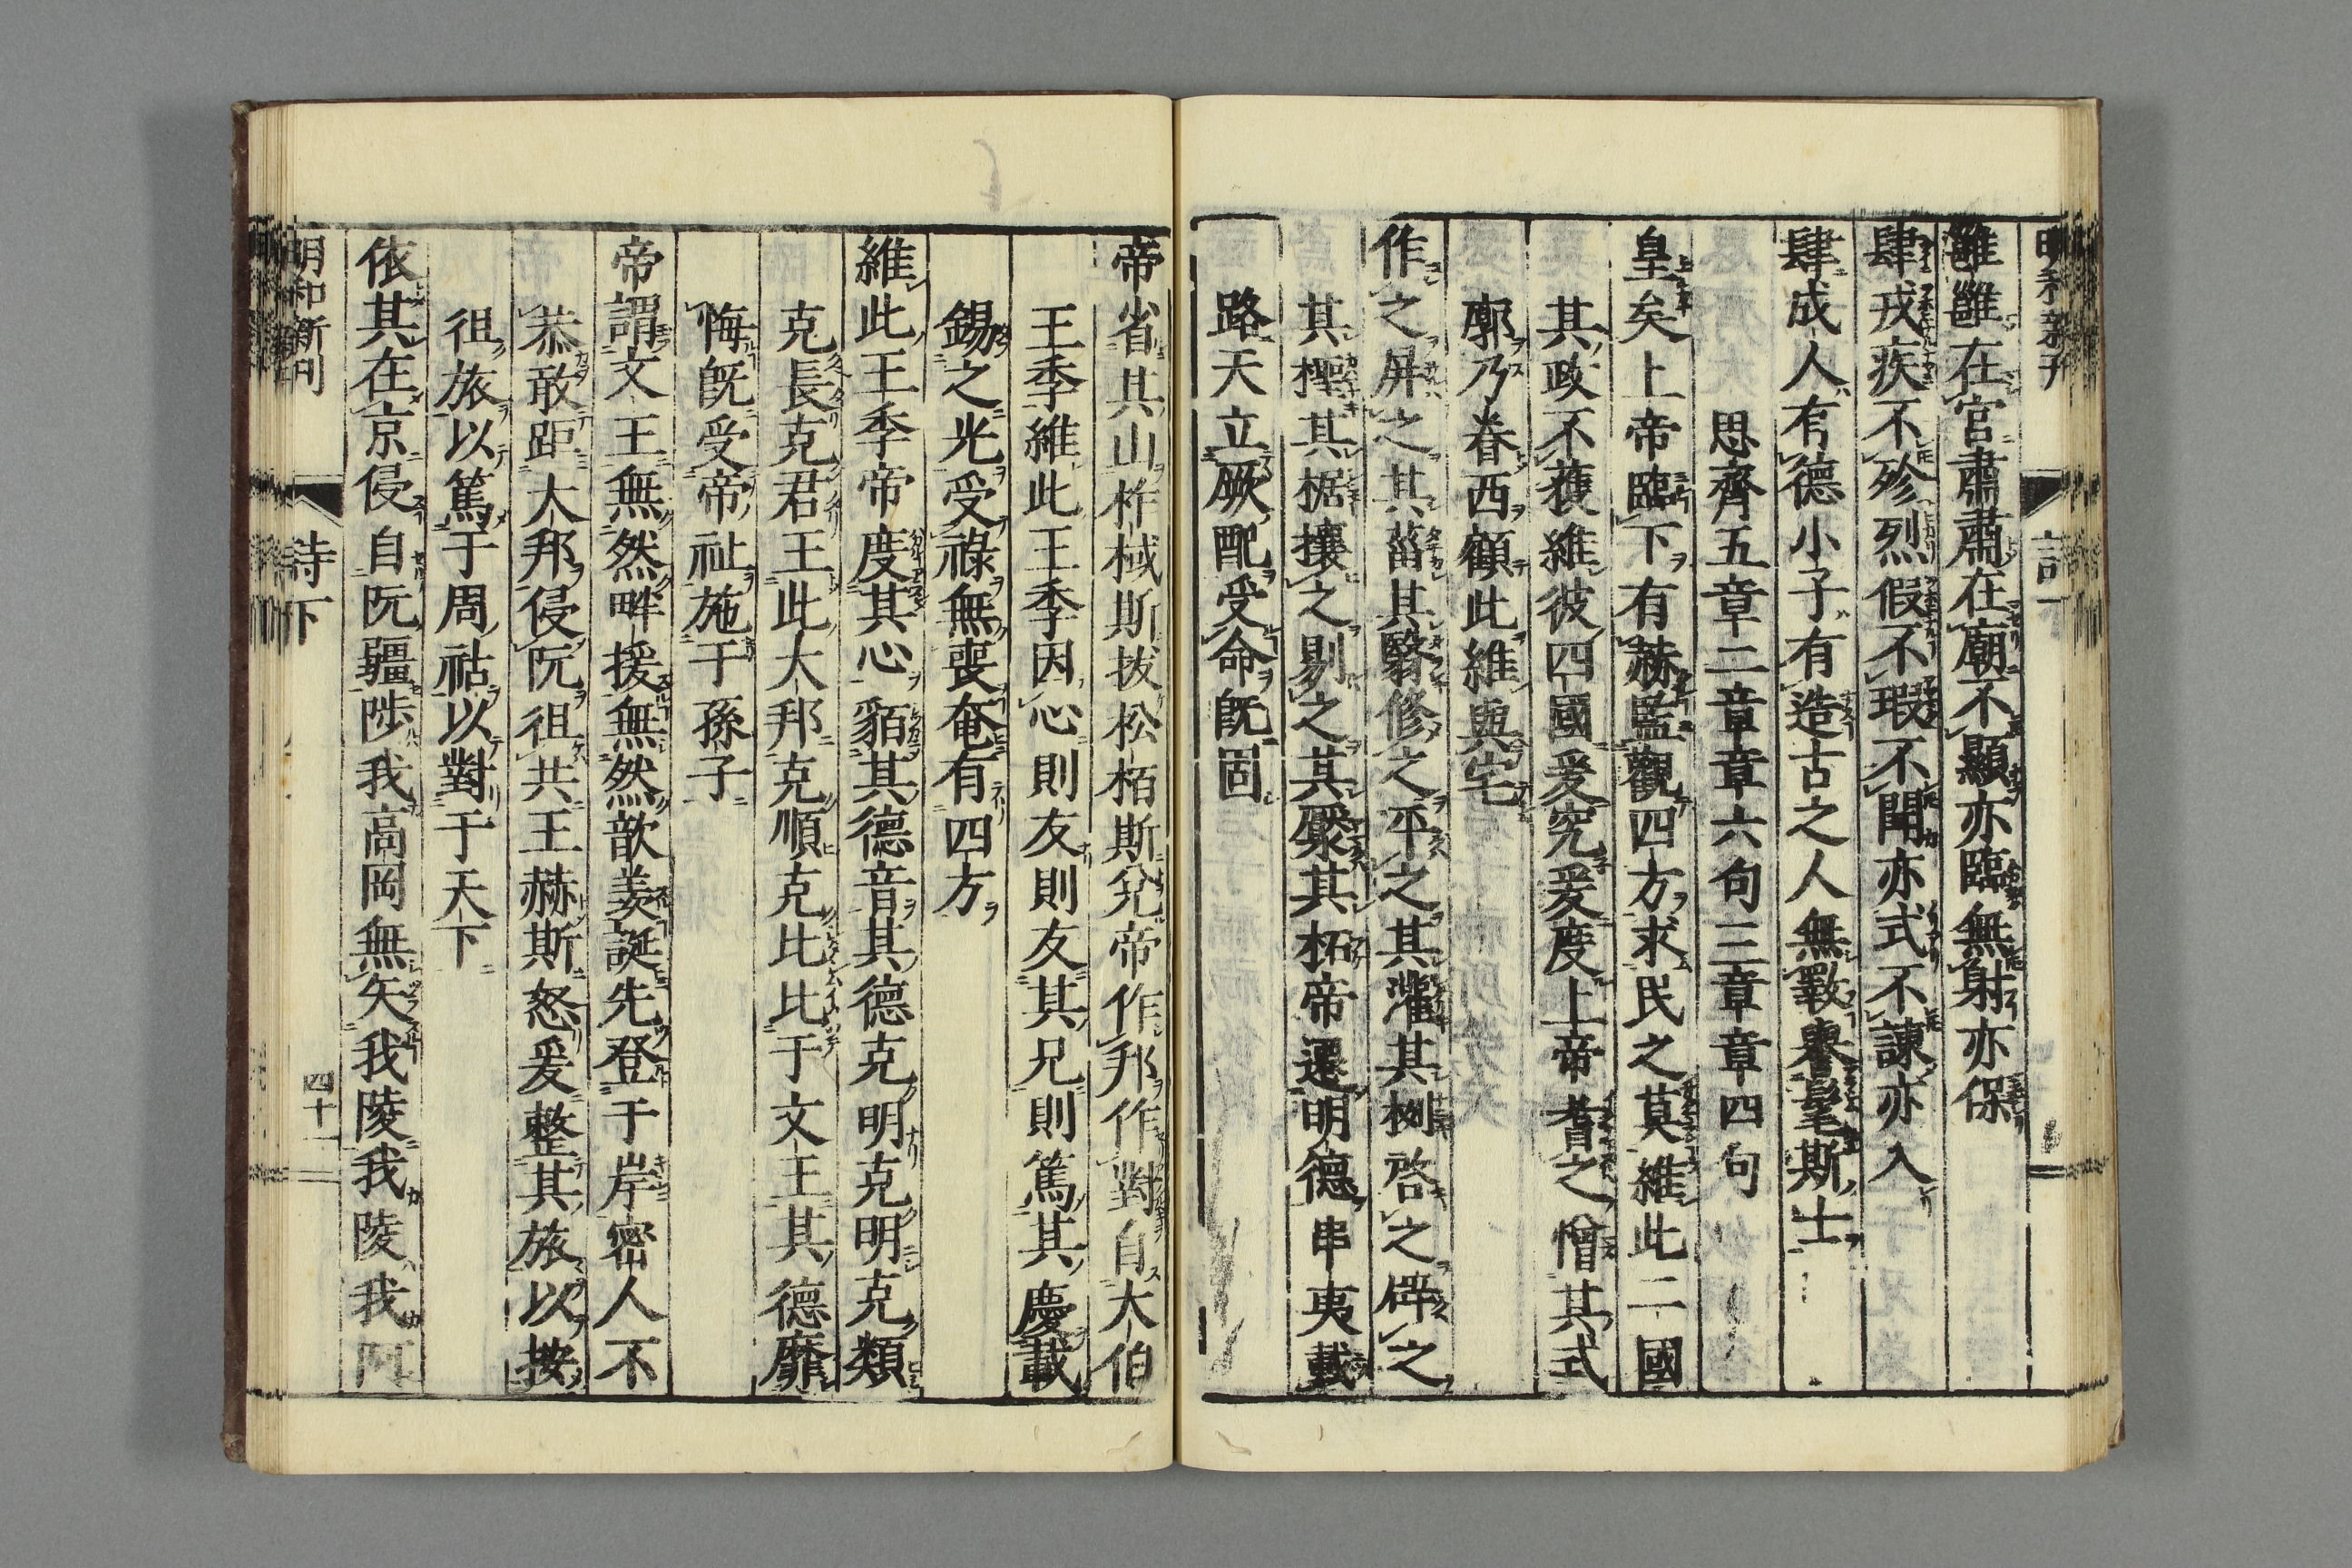 雝雝在宮肅肅在廟不顯亦臨無射亦保
肆戎疾不殄烈假不瑕不聞亦式不諫亦入
肆成人有德小子有造古之人無斁譽髦斯士
思齊五章二章章六句三章章四句
皇矣上帝臨下有赫監觀四方求民之莫維此二國
其政不獲維彼四國爰究爰度上帝耆之憎其式
廓乃眷西顧此維與宅
作之屏之其菑其翳修之平之其灌其栵啓之辟之
其檉其椐攘之剔之其檿其柘帝遷明德串夷載
路天立厥配受命旣固
帝省其山柞棫斯拔松栢斯兌帝作邦作對自大伯
王季維此王季因心則友則友其兄則篤其慶載
錫之光受祿無喪奄有四方
維此王季帝度其心貊其德音其德克明克明克類
克長克君王此大邦克順克比比于文王其德靡
悔旣受帝祉施于孫子
帝謂文王無然畔援無然歆羨誕先登于岸密人不
恭敢距大邦侵阮徂共王赫斯怒爰整其旅以按
徂旅以篤于周祜以對于天下
依其在京侵自阮疆陟我高岡無矢我陵我陵我阿
明和新刊
詩下
四十一